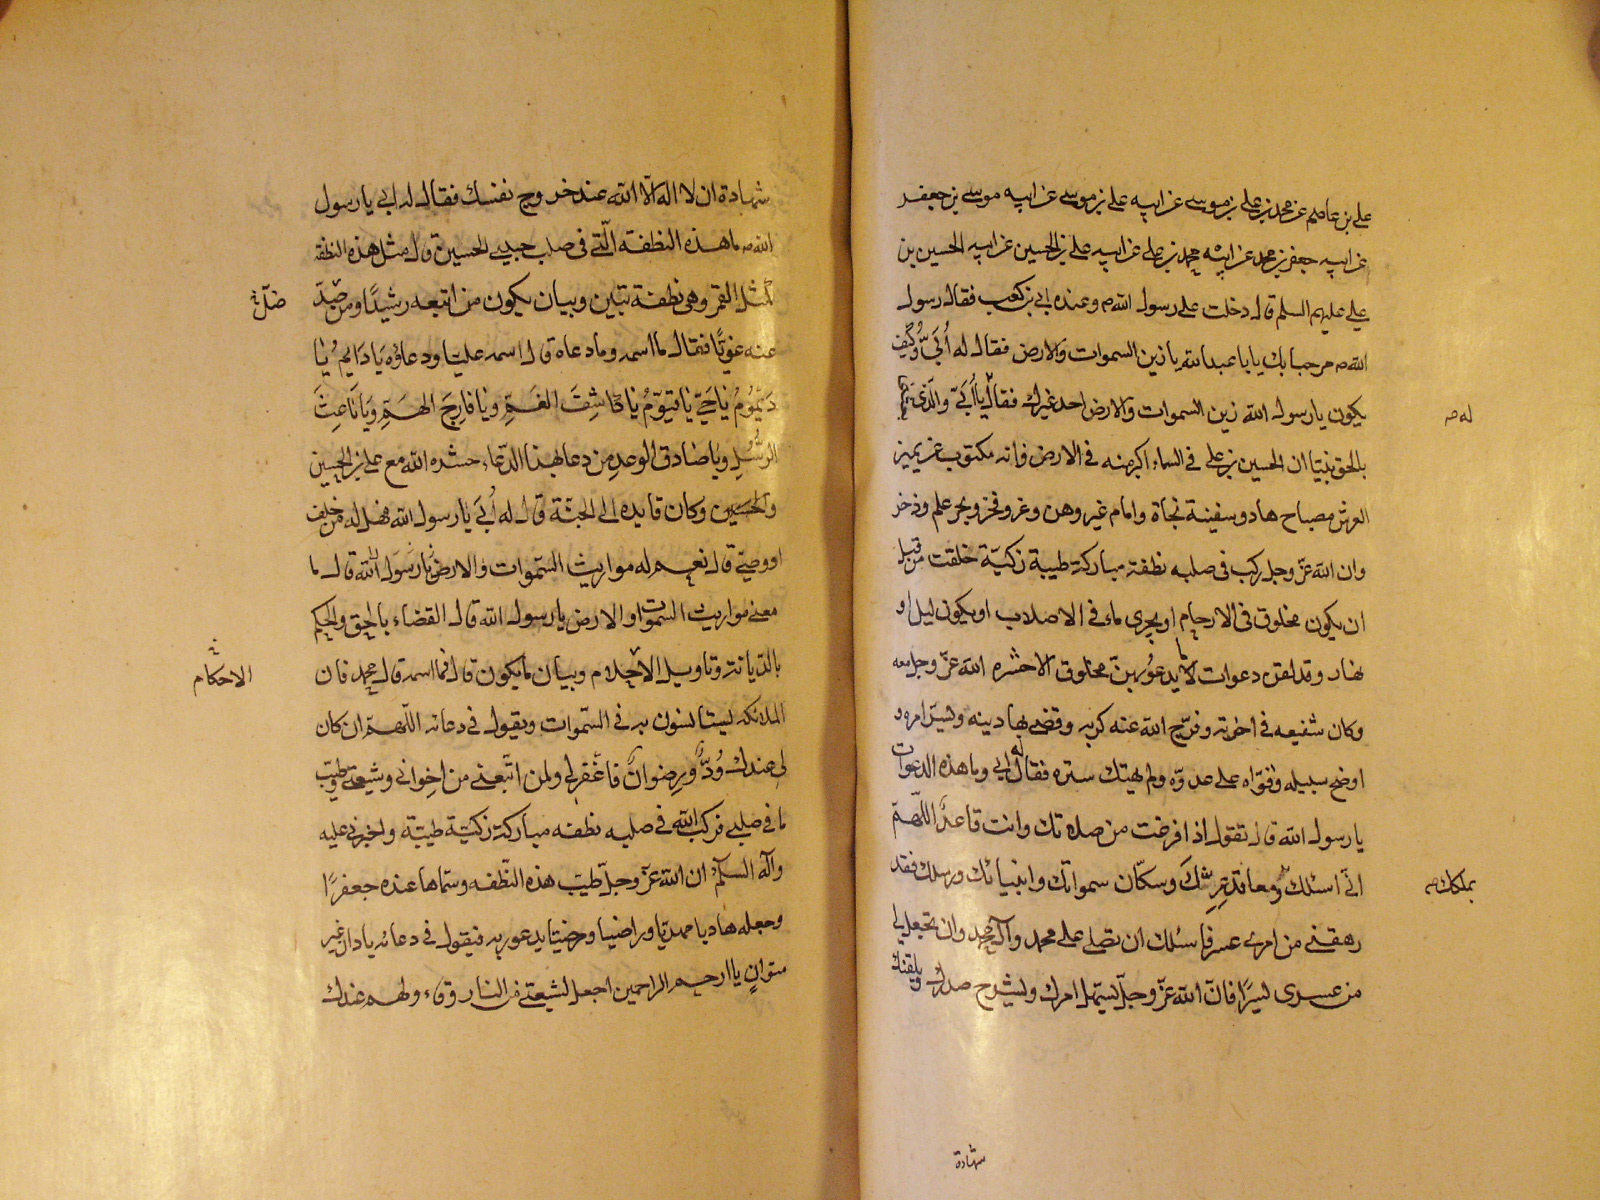 علي بن عاصم عن محمد بن علي بن موسى عن ابيه علي بن موسى عن ابيه موسى بن جعفر
عن ابيه جعفر بن محمد عن ابيه محمد بن علي عن ابيه علي بن الحسين عن ابيه الحسين بن
علي عليهم السلم قال دخلت على رسول الله ص وعنده ابي بن كعب فقال رسول
الله ص مرحبا بك يا با عبد الله يا زين السموات والارض فقال له أُبَيّ وكيف
يكون يا رسول الله زين السموات والارض احد غيرك فقال يا أُبَيّ والذي بعثني
له ص
بالحق نبيّا ان الحسين بن علي في السماء اكبر منه في الارض فانه مكتوب عن يمين
العرش مصباح هاد وسفينة نجاة وامام غير وهن وعز وفخر وبحر علم وذخر
وان الله عزّ وجل ركب في صلبه نطفة مباركة طيبة زكيّة خلقت من قبل
ان يكون مخلوق في الارحام او يجري ماء في الاصلاب او يكون ليل او
نهار ولقد لقن دعوات ما يدعو بهنّ مخلوق الا حشره الله عزّ وجل معه
وكان شفيعه في اخرته وفرّج الله عنه كربه وقضى بها دينه ويسّر امره و
اوضح سبيله وقوّاه على عدوّه ولم يهتك ستره فقال له ابي وما هذه الدعوات
يا رسول الله قال تقول اذا فرغت من صلاتك وانت قاعدٌ اللّهمّ
انّي اسئلك ومعاقد عرشك وسكّان سمواتك وانبيائك ورسلك فقد
بملكك ص
رهقني من امري عسر فاسئلك ان تصلي على محمد وآل محمد وان تجعل لي
من عسري يسرًا فانّ الله عزّ وجلّ يسهّل امرك ويشرح صدرك ويلقنك
شهادة
شهادة ان لا اله الّا الله عند خروج نفسك فقال له ابي يا رسول
الله ص ما هذه النطفة الّتي في صلب حبيبي الحسين قال مثل هذه النطفة
كمثل القمر وهي نطفة تبيين وبيان يكون من اتبعه رشيدًا ومن ضلّ
ضلّ خ
عنه غويًّا فقال ما اسمه وما دعاه قال اسمه علي ودعاؤه يَا دَايمُ يَا
دَيْمُومُ يَا حَيُّ يَا قيّومُ يَا كَاشِفَ الغَمِّ وَيَا فَارِجَ الهَمِّ وَيَا بَاعِثَ
الرُّسُلِ وَيَا صَادِقَ الوعدِ من دعا بهذا الدّعاء حشره الله مع علي بن الحسين
وكان قايده الى الجنّة قال له أُبَيّ يا رسول الله فهل له من خلف
او وصيّ قال نعم له مواريث السّموات والارض يا رسول الله قال ما
معنى مواريث السموات والارض يا رسول الله قال القضاء بالحق والحكم
بالديانة وتاويل الاحلام وبيان ما يكون قال فما اسمه قال محمد فان
الاحكام خ
الملائكه ليستانسون به في السّموات ويقول في دعائه اللّهمّ ان كان
لي عندك رضوانٌ وودٌّ فاغفر لي ولمن اتّبعني من اخواني وشيعتي وطيّب
ما في صلبي فركّب الله في صلبه نطفه مباركة زكيّة طيبّة واخبرني عليه
وآله السلم ان الله عزّ وجلّ طيّب هذه النّطفه وسمّاها عنده جعفرًا
وجعله هاديا مهديّا وراضيا ومرضيّا يدعو ربه فيقول في دعائه يا دان غير
متوانٍ يا ارحم الراحمين اجعل لشيعتي من النار وقاء ولهم عندك